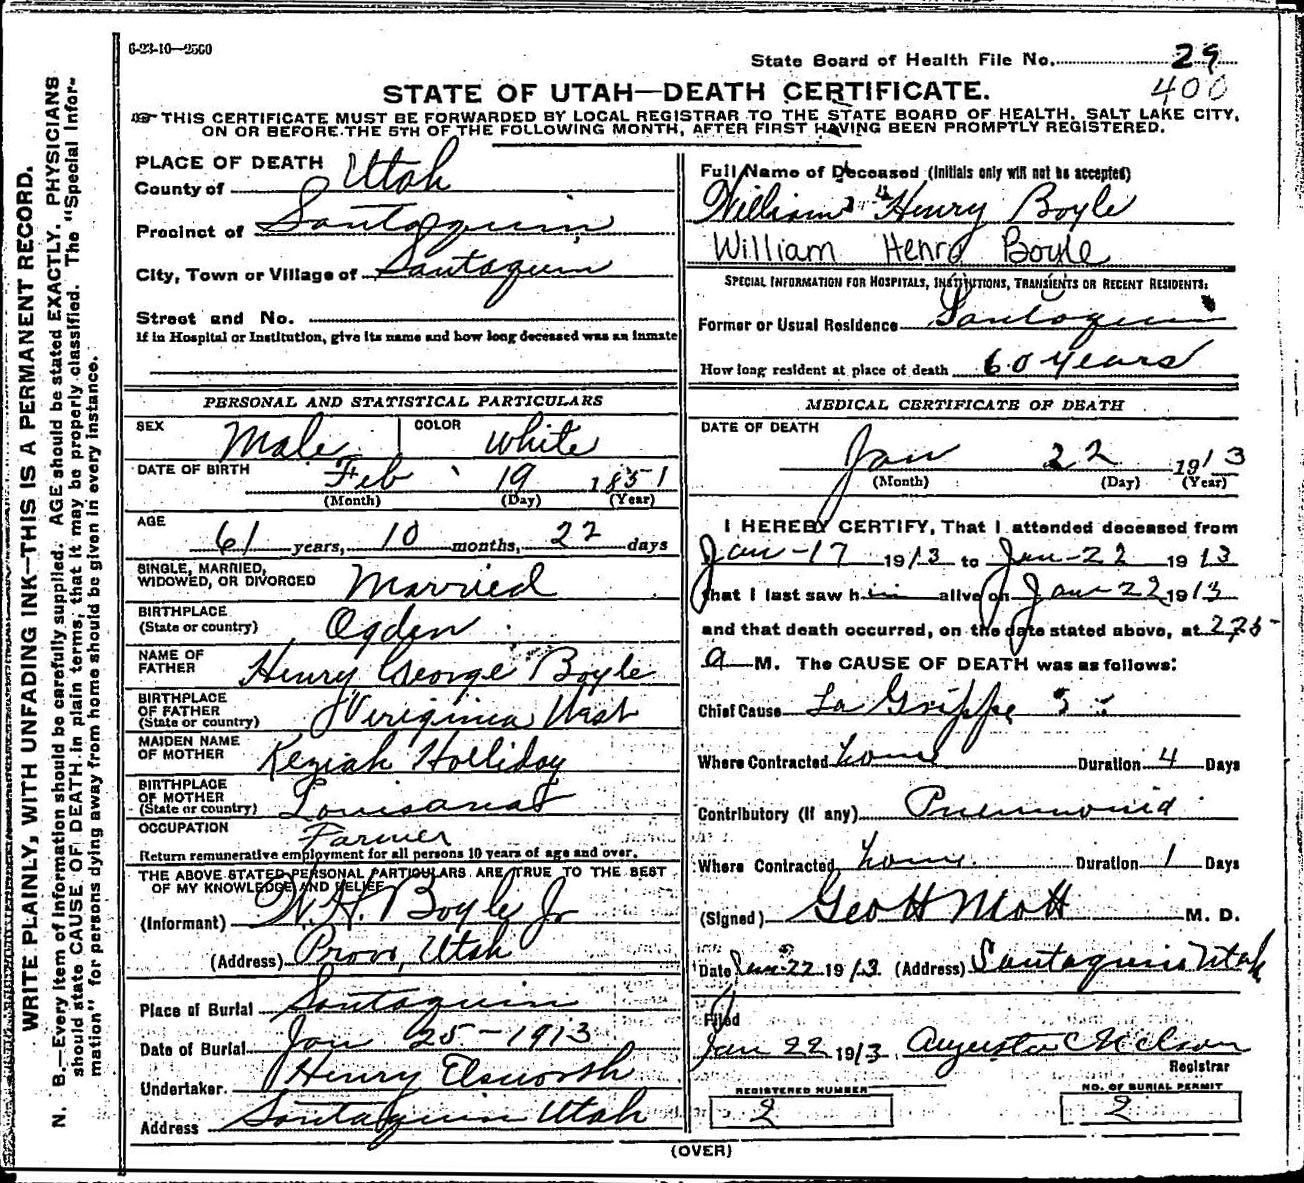 6-23-10—2500
State Board of Health File No. 29
400
STATE OF UTAH—DEATH CERTIFICATE.
THIS CERTIFICATE MUST BE FORWARDED BY LOCAL REGISTRAR TO THE STATE BOARD OF HEALTH, SALT LAKE CITY,
ON OR BEFORE THE 5TH OF THE FOLLOWING MONTH, AFTER FIRST HAVING BEEN PROMPTLY REGISTERED.
WRITE PLAINLY, WITH UNFADING INK—THIS IS A PERMANENT RECORD.
N. B.—Every item of information should be carefully supplied. AGE should be stated EXACTLY. PHYSICIANS
should state CAUSE OF DEATH in plain terms, that it may be properly classified. The "Special Infor-
mation" for persons dying away from home should be given in every instance.
PLACE OF DEATH
County of Utah
Precinct of Santaquin
City, Town or Village of Santaquin
Street and No.
If in Hospital or Institution, give its name and how long deceased was an inmate
PERSONAL AND STATISTICAL PARTICULARS
SEX Male COLOR White
DATE OF BIRTH Feb 19 1851
(Month) (Day) (Year)
AGE
61 years, 10 months, 22 days
SINGLE, MARRIED,
WIDOWED, OR DIVORCED Married
BIRTHPLACE
(State or country) Ogden
NAME OF
FATHER Henry George Boyle
BIRTHPLACE
OF FATHER
(State or country) Veriginia West
MAIDEN NAME
OF MOTHER Keziah Holliday
BIRTHPLACE
OF MOTHER
(State or country) Louisana
OCCUPATION Farmer
Return remunerative employment for all persons 10 years of age and over.
THE ABOVE STATED PERSONAL PARTICULARS ARE TRUE TO THE BEST
OF MY KNOWLEDGE AND BELIEF
(Informant) W. H. Boyle Jr
(Address) Provo, Utah
Place of Burial Santaquin
Date of Burial Jan 25-1913
Undertaker. Henry Elsworth
Address Santaquin Utah
Full Name of Deceased (Initials only will not be accepted)
William Henry Boyle
William Henry Boyle
SPECIAL INFORMATION FOR HOSPITALS, INSTITUTIONS, TRANSIENTS OR RECENT RESIDENTS:
Former or Usual Residence Santaquin
How long resident at place of death 60 Years
MEDICAL CERTIFICATE OF DEATH
DATE OF DEATH
Jan 22 1913
(Month) (Day) (Year)
I HEREBY CERTIFY, That I attended deceased from
Jan-17 1913 to Jan-22 1913
that I last saw him alive on Jan 22 1913
and that death occurred, on the date stated above, at
a M. The CAUSE OF DEATH was as follows:
Chief Cause La Grippe
Where Contracted home Duration 4 Days
Contributory (if any) Pneumonia
Where Contracted home Duration 1 Days
(Signed) Geo H Mott M. D.
Date Jan 22 1913 (Address) Santaquin Utah
Filed
Jan 22 1913 Augusta C Nelson
Registrar
REGISTERED NUMBER
2
NO. OF BURIAL PERMIT
2
(OVER)